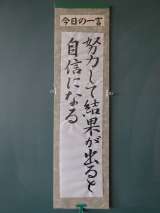 今日の一言
努力して結果が出ると
自信になる